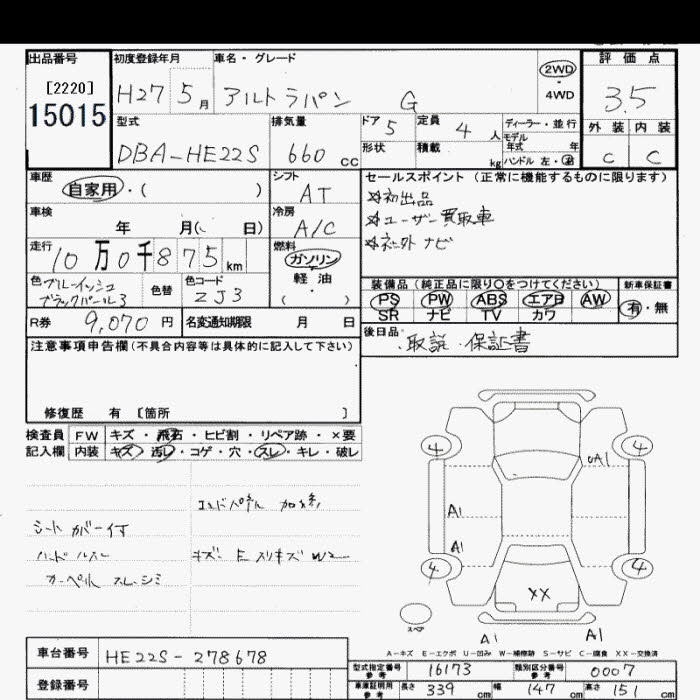 出品番号 初度登録年月 車名・グレード 評価点
[2220] 2WD
15015 H27 5月 アルトラパン G ・ 3.5
4WD
型式 排気量 ドア 5 定員 4人 ディーラー・並行 外装 内装
モデル年式 年
DBA-HE22S 660cc 形状 積載 kg ハンドル 左・右 C C
車歴 シフト セールスポイント(正常に機能するものに限ります)
自家用・( ) AT ☆初出品
車検 冷房 ☆ユーザー買取車
年 月( 日) A/C ☆社外ナビ
走行 燃料
10万0千875km ガソリン
色 ブルーイッシュ 色替 色コード 軽油 装備品(純正品に限り○をつけてください) 新車保証書
ブラックパール3 ZJ3 ・( ) PS PW ABS エアB AW 有・無
SR ナビ TV カワ
R券 9,070円 名変通知期限 月 日 後日品
注意事項申告欄(不具合内容等は具体的に記入して下さい) ・取説・保証書
修復歴 有 [箇所 ]
検査員 FW キズ・飛石・ヒビ割・リペア跡・×要
記入欄 内装 キズ・汚レ・コゲ・穴・スレ・キレ・破レ
4 4
A1
加修
A1
シートカバー付
A1
キズ E スリキズ W2
カーペット スレ シミ
4 4
XX
スペア
A1 A1
A-キズ E-エクボ U-凹み W-補修跡 S-サビ C-腐食 XX-交換済
車台番号 HE22S-278678
型式指定番号 参考 16173 類別区分番号 参考 0007
登録番号 車庫証明用 参考 長さ 339cm 幅 147cm 高さ 151cm